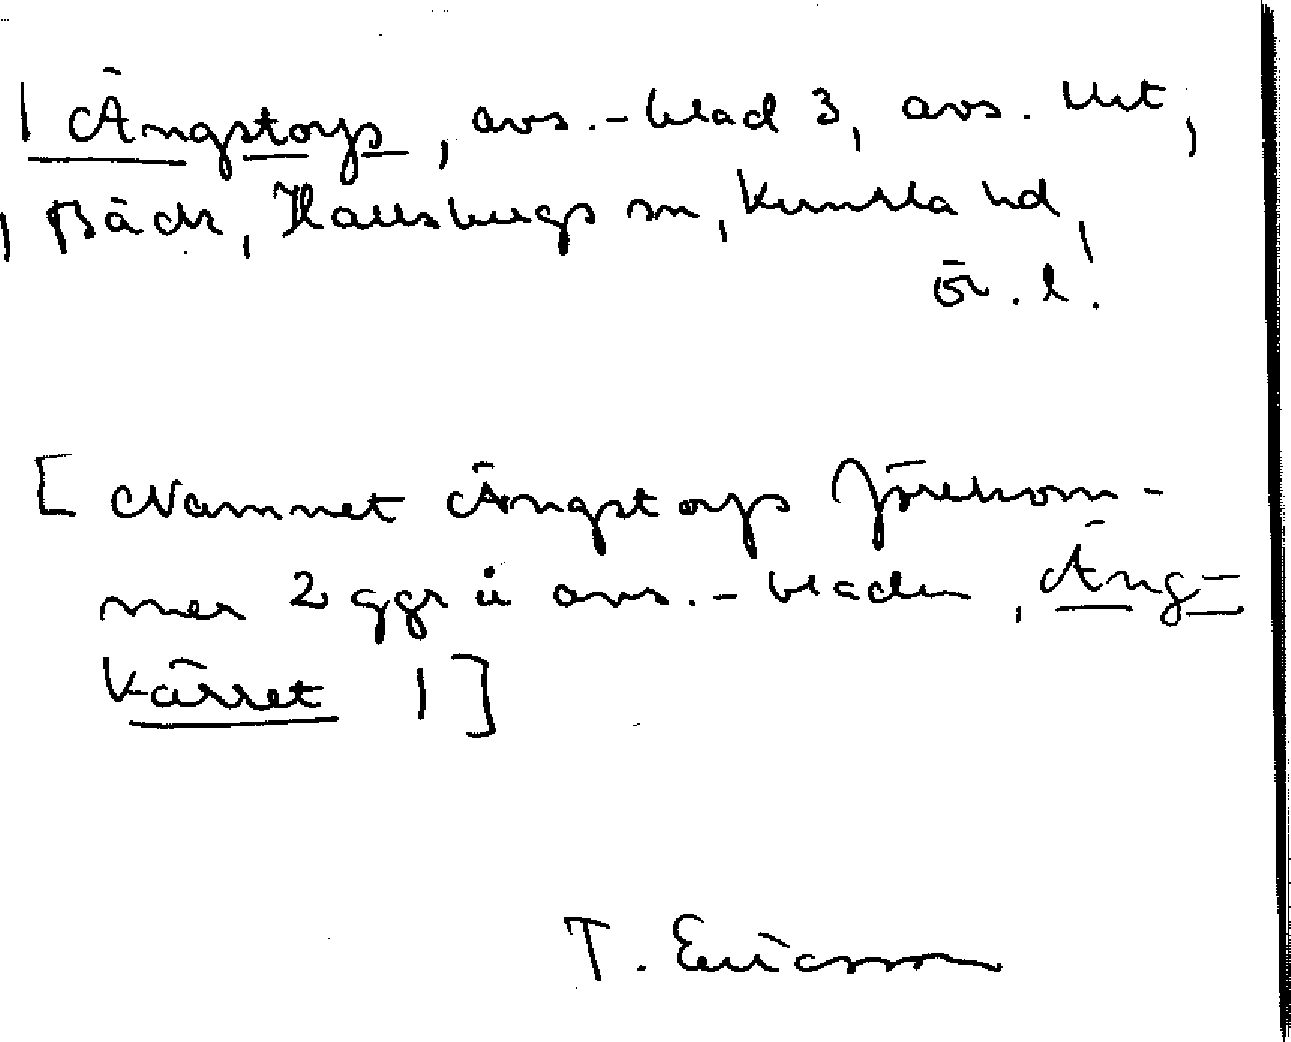 | Ängstorps, avs.-blad 3, avs.
, Bäck, Hallsbergs sn, Kumla hd,
Ör. l.
[ Namnet Ängstorps förekom-
mer 2 ggr i avs.-bladen, Äng=
kärret | ]
T. Ericsson